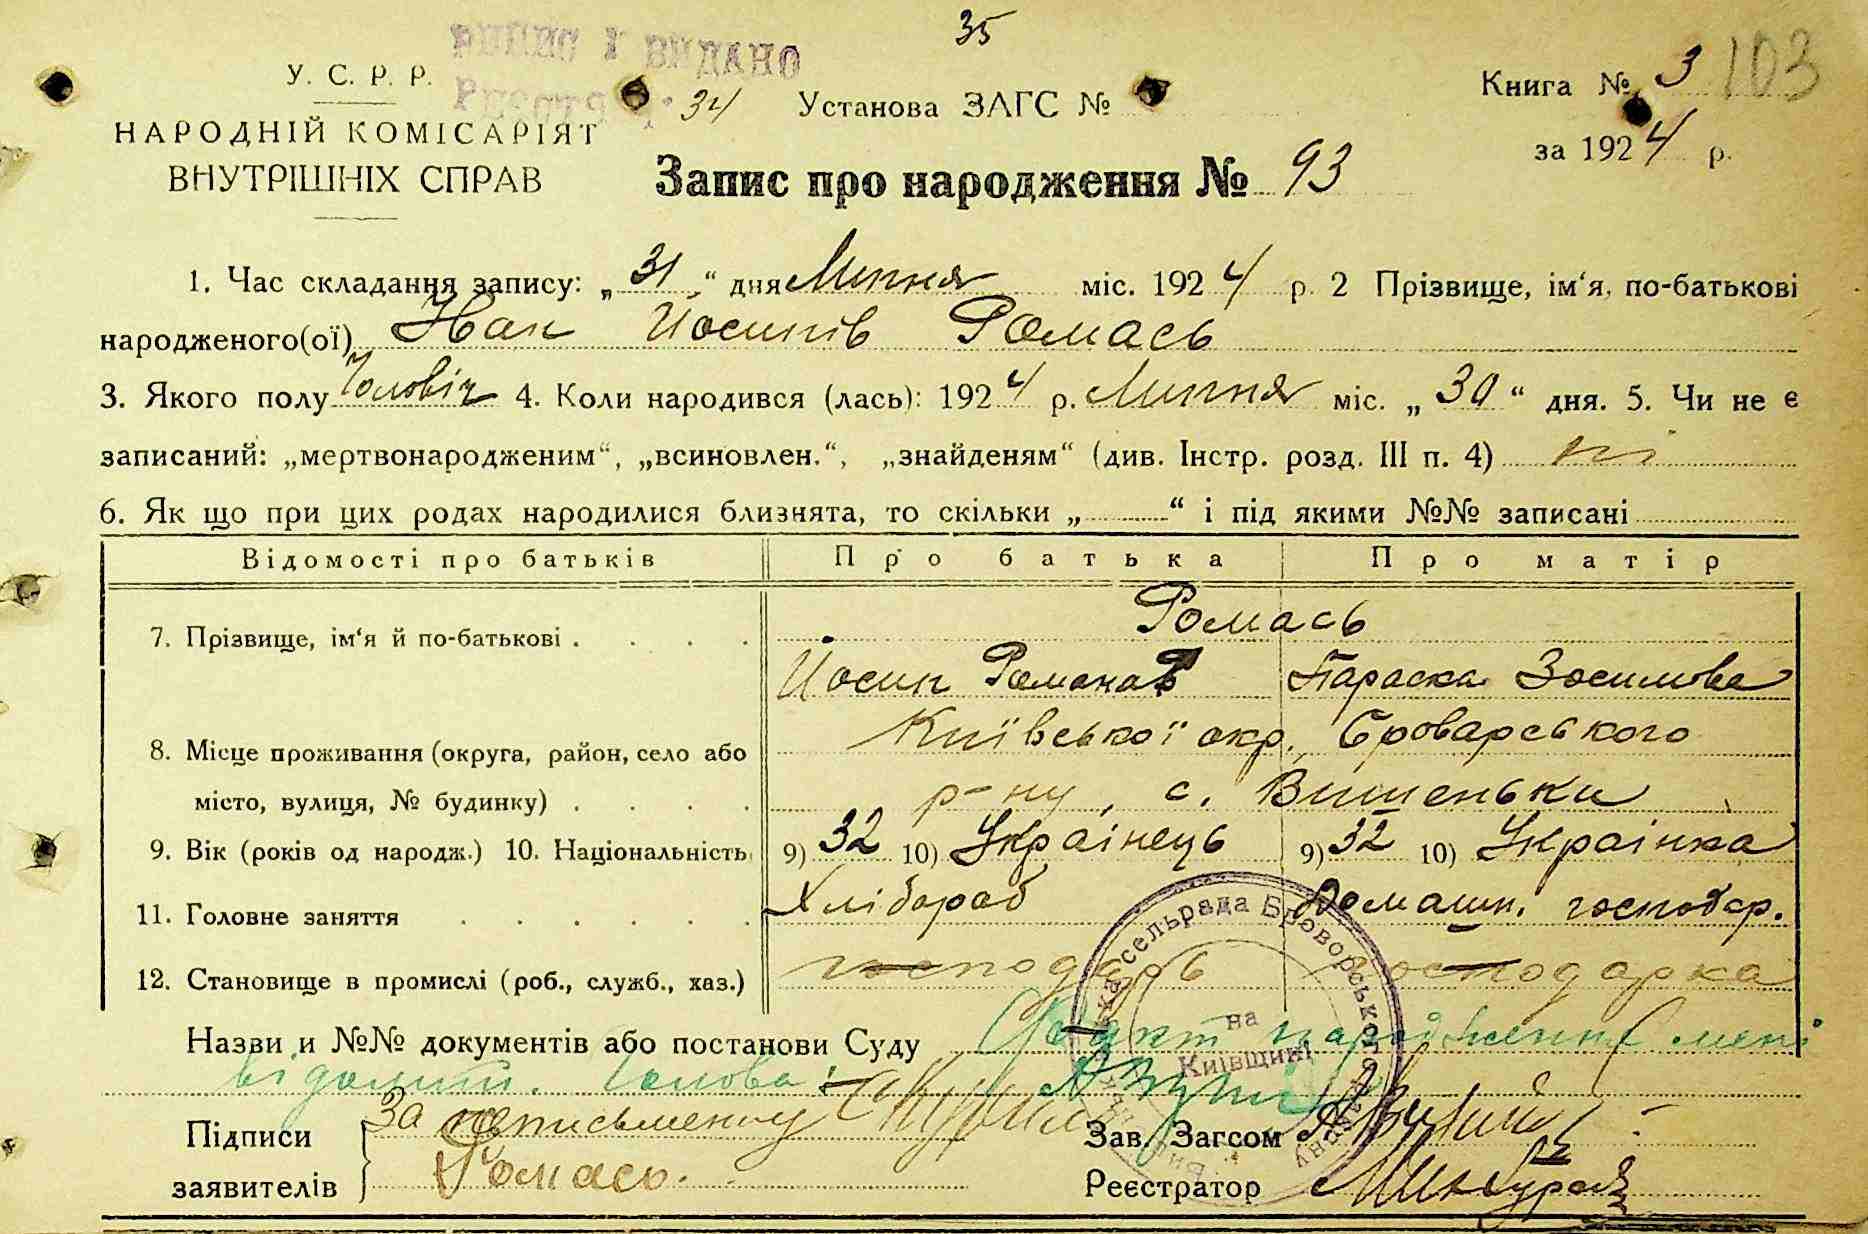 35
ВИПИС І ВИДАНО
У. С. Р. Р.
Книга № 3 103
34 Установа ЗАГС №
НАРОДНІЙ КОМІСАРІЯТ
ВНУТРІШНІХ СПРАВ
за 1924 р.
Запис про народження № 93
1. Час складання запису: „31“ дня Липня міс. 1924 р. 2 Прізвище, ім‘я, по-батькові
народженого(ої) Йосипів Ромась
3. Якого полу Чоловіч 4. Коли народився (лась): 1924 р. Липня міс. „30“ дня. 5. Чи не є
записаний: „мертвонародженим“, „всиновлен.“, „знайденям“ (див. Інстр. розд. III п. 4) ні
6. Як що при цих родах народилися близнята, то скільки „ “ і під якими №№ записані
Відомості про батьків Про батька Про матір
Ромась
7. Прізвище, ім‘я й по-батькові . . . .
Йосип Романов Параска Зосимова
8. Місце проживання (округа, район, село або Київської окр. Броварського
місто, вулиця, № будинку) . . . . р-ну, с. Вишеньки
9. Вік (років од народж.) 10. Національність 9) 32 10) Украінець 9) 32 10) Украінка
11. Головне заняття . . . . . Хлібороб Домашн. господар.
12. Становище в промислі (роб., служб., хаз.) господарь господарка
Назви и №№ документів або постанови Суду Факт народження мені
відомий. Голова
Підписи За неписьменну Зав. Загсом
заявителів Ромась. Реєстратор
сельрада Броворського району
на
Київщині